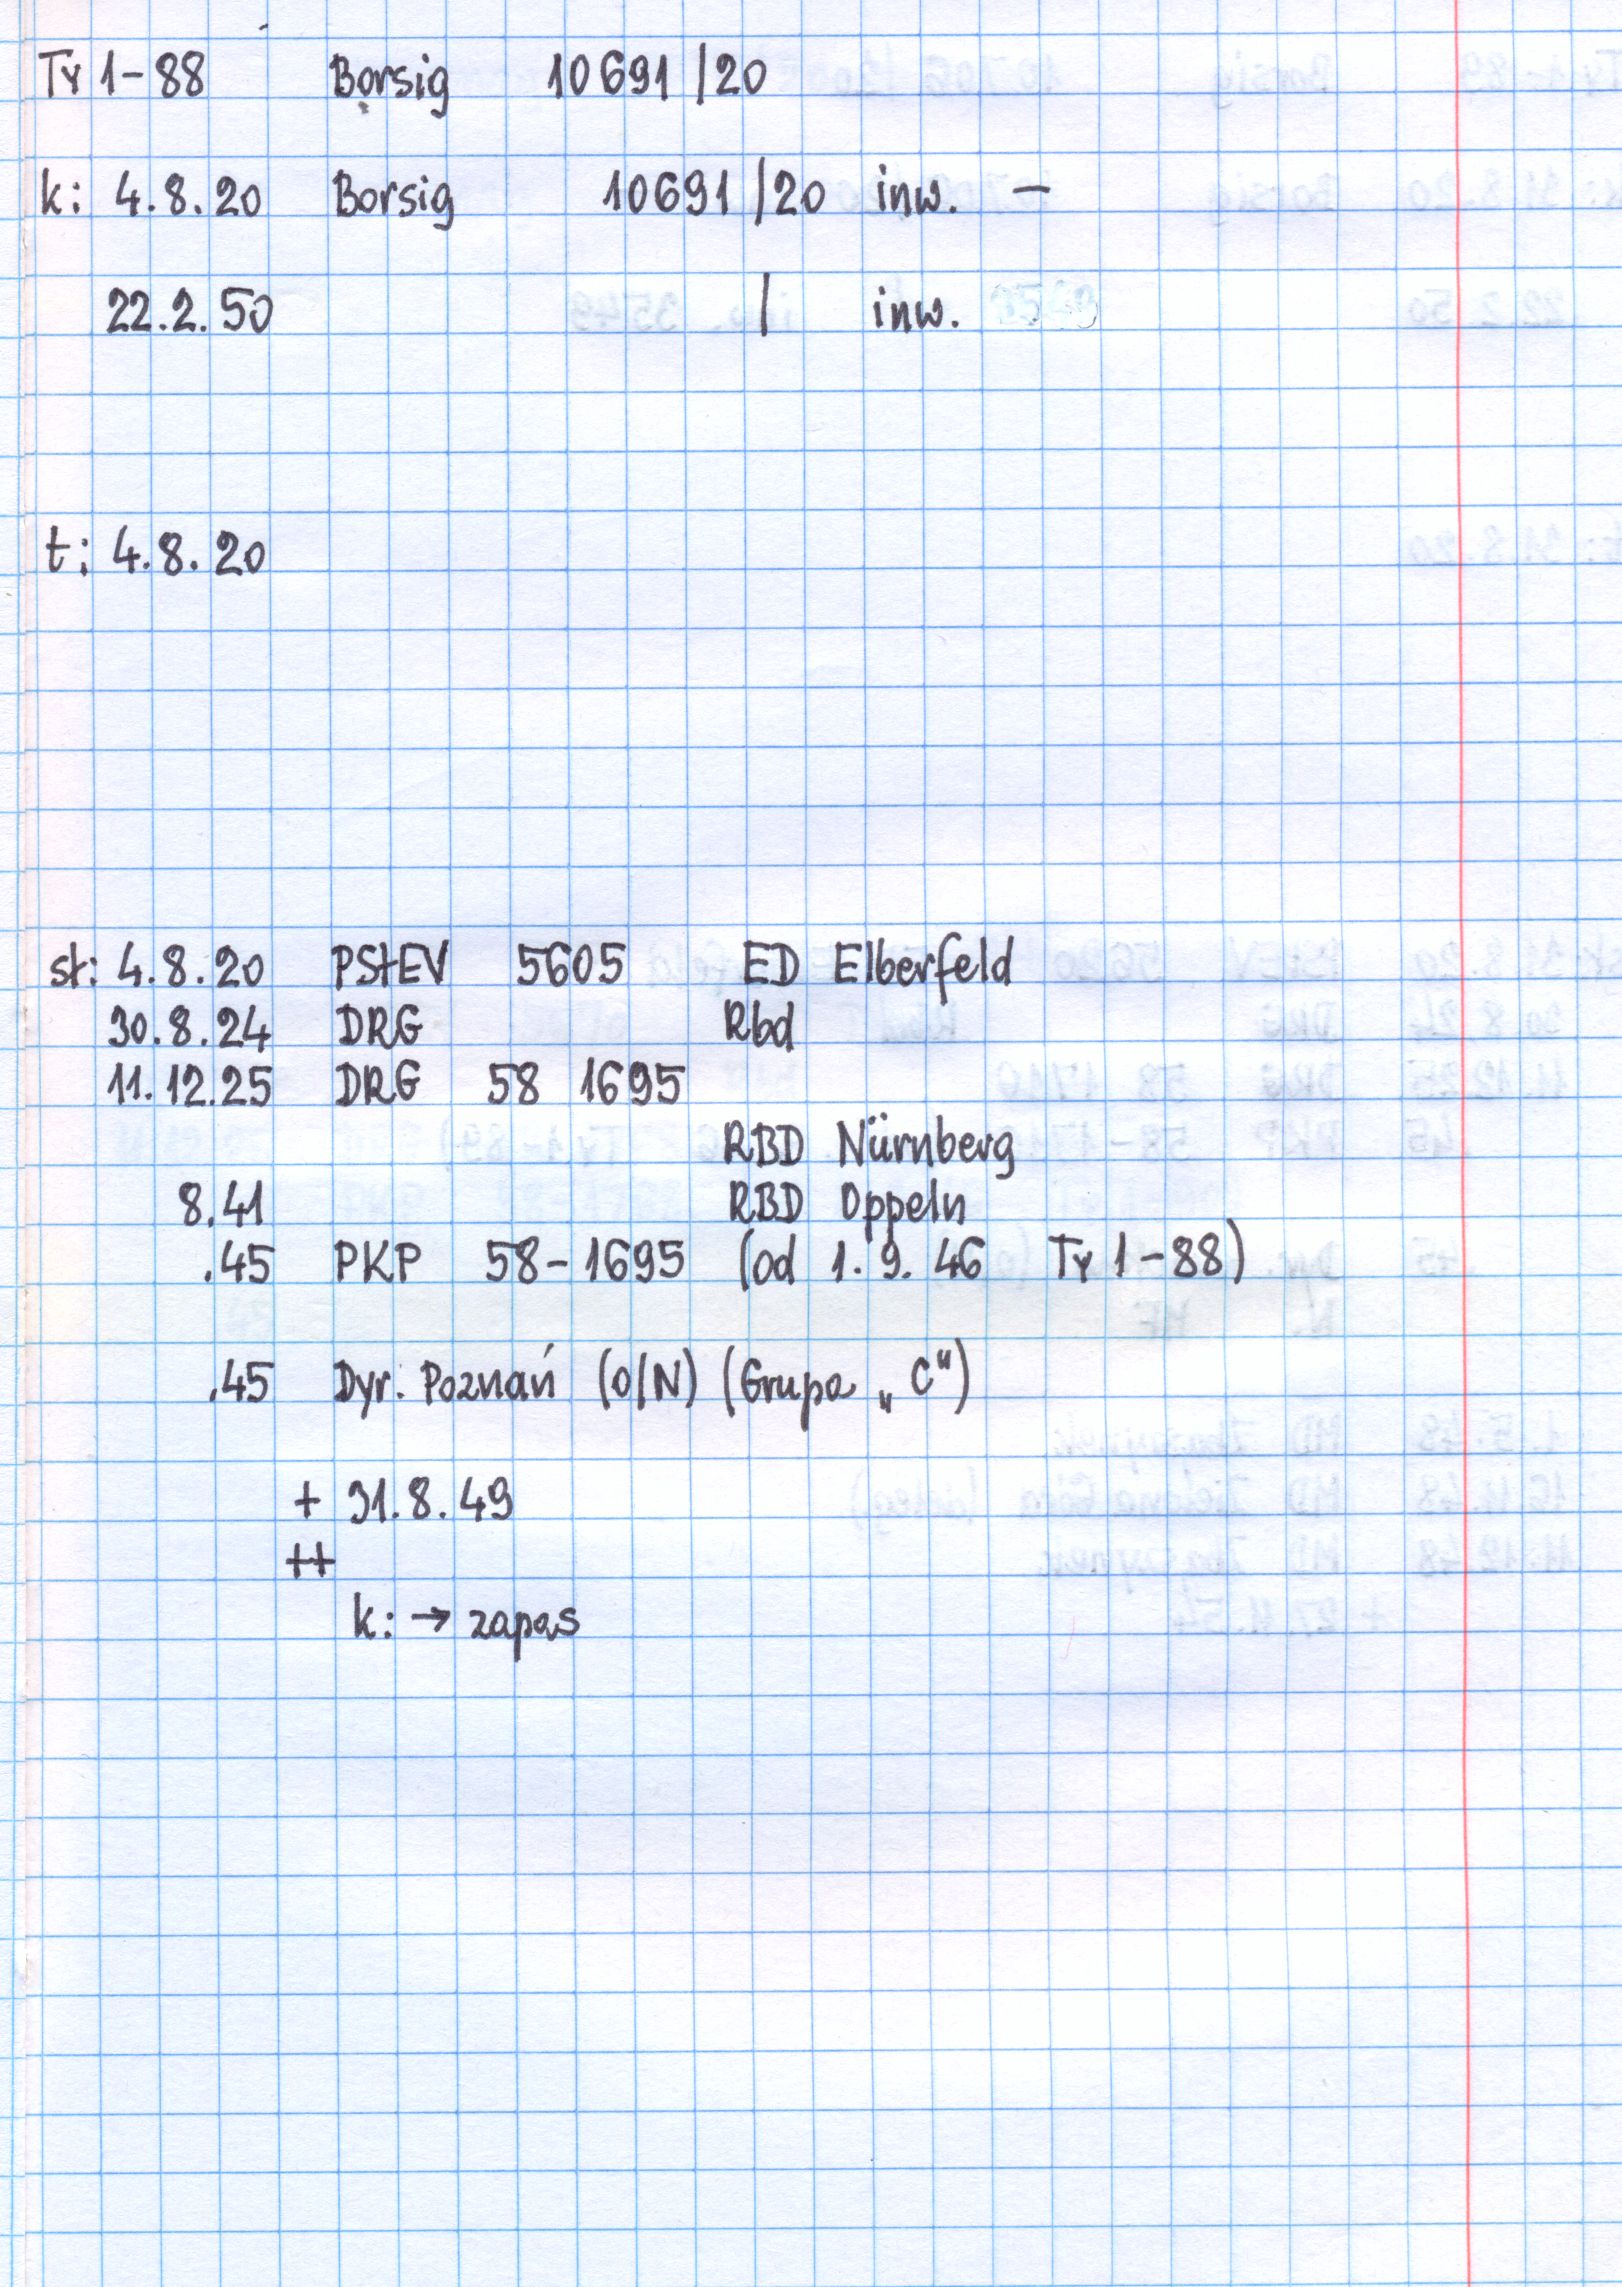 Ty 1-88 Borsig 10691/20
k: 4.8.20 Borsig 10691/20 inw. –
22.2.50 / inw.
t: 4.8.20
st: 4.8.20 PStEV 5605 ED Elberfeld
30.8.24 DRG Rbd
11.12.25 DRG 58 1695
RBD Nürnberg
8.41 RBD Oppeln
.45 PKP 58-1695 (od 1.9.46 Ty 1-88)
.45 Dyr. Poznań (O/N) (Grupa „C")
+ 31.8.49
++
k: → zapas